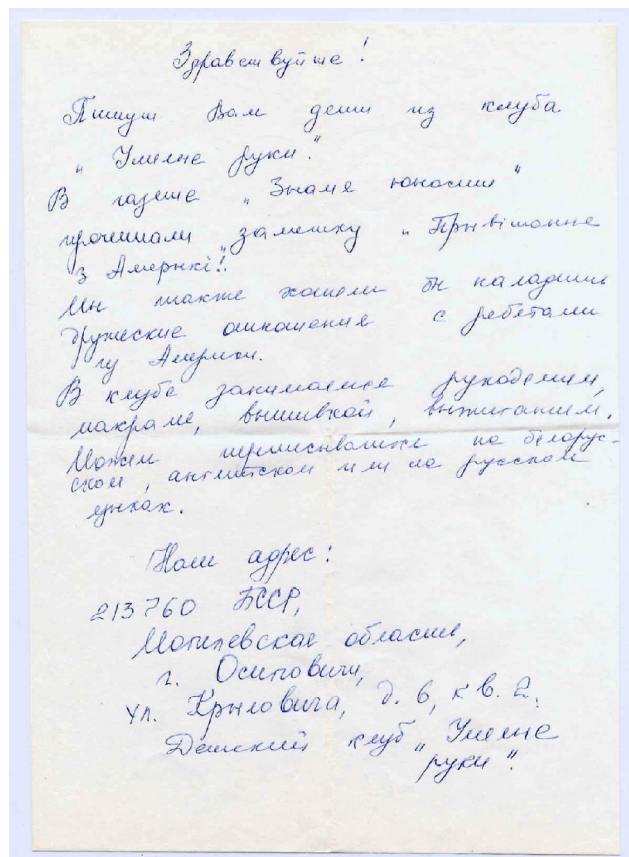 Здравствуйте!
Пишут Вам дети из клуба
„Умелые руки".
В газете „Знамя юности"
прочитали заметку „Прывітанне
з Амерыкі".
Мы также хотели бы наладить
дружеские отношения с ребятами
из Америки.
В клубе занимаемся рукоделием,
макраме, вышивкой, выжиганием.
Можем переписываться на белорус-
ском, английском или на русском
языках.
Наш адрес:
213760 БССР,
Могилевская область,
г. Осиповичи,
ул. Крыловича, д. 6, кв. 2.
Детский клуб „Умелые
руки".